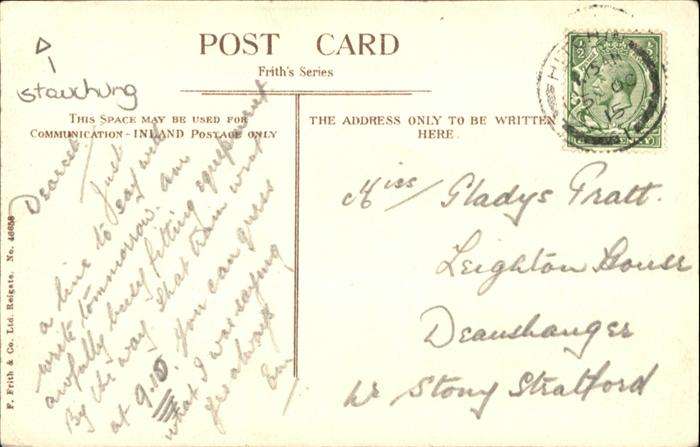 POST CARD
Frith's Series
THIS SPACE MAY BE USED FOR
COMMUNICATION - INLAND POSTAGE ONLY
THE ADDRESS ONLY TO BE WRITTEN
HERE.
F. Frith & Co. Ltd. Reigate. No. 46658
Dearest
Just
a line to say will
write tommorrow. am
awfully busy fitting equipment
By the way that train went
at 9.50. You can guess
what I was saying
Yrs always
Miss Gladys Pratt.
Leighton House
Deanshanger
Nr Stony Stratford